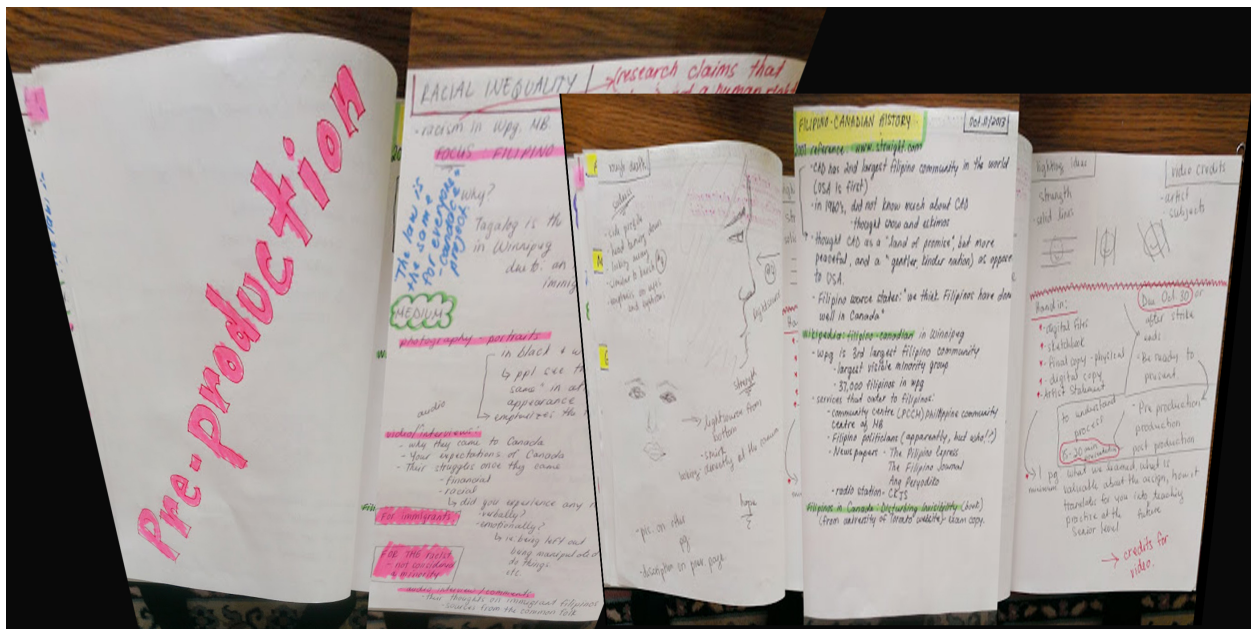 Pre-production
RACIAL INEQUALITY
research claims that
- racism in Wpg, MB.
FOCUS FILIPINO
The law is
the same
for everyone
- candace's
project
Why?
Tagalog is th
in Winnipeg
due. an
immig
MEDIUM
photography portraits
in black + w
ppl see th
same" in
appearance
emphasizes the
audio
video/interviews
- why they came to Canada
- Your expectations of Canada
- Their struggles once they came
- financial
- racial
did you experience any
- verbally?
- emotionally?
is being left out
being manipulated
do things.
etc.
For immigrants
FOR THE racist
- not considered
a minority
audio interview/comments
- their thoughts on immigrant Filipinos
- sources from the common folk
rough draft
- side profile
- head turning down
- looking away
- emphasis on eyes
and
lightsource
strength
lightsource from
bottom
- smirk
looking directly at the camera
hope
- pic. on other
pg.
- discription on prev. page.
FILIPINO-CANADIAN HISTORY
Oct.11/2013
reference: www.straight.com
- CAD has 2nd largest filipino community in the world
(USA is first)
- in 1960's, did not know much about CAD
- thought snow and eskimos
- thought CAD as a "land of promise", but more
peaceful, and a "gentler, kinder nation) as oppose
to USA.
- Filipino source states: "we think Filipinos have done
well in Canada"
wikipedia: filipino-canadian in Winnipeg
- wpg is 3rd largest filipino community
- largest visible minority group
- 37,000 filipinos in wpg
- services that cater to filipinos:
- community centre (PCCM) philippine community
centre of MB
- Filipino politicians (apparently, but who!?)
- News papers - The Pilipino Express
The Filipino Journal
Ang Peryodiko
- radio station- CKJS
Filipinos in Canada: Disturbing Invisibility (book)
(from university of Toronto website) exam copy.
lighting ideas
strength
- solid lines
video credits
- artist
- subjects
Hand in:
- digital files
- sketchbook
- final copy - physical
- digital copy
- Artist Statement
Due Oct. 30 or
after strike
ends.
- Be ready to
present.
to understand
process
15-20 min
- Pre production
production
post production
1 pg
minimum
what we learned, what is
valuable about the assign, how it
translate for you into teaching
practice at the future
senior level
→ credits for
video.